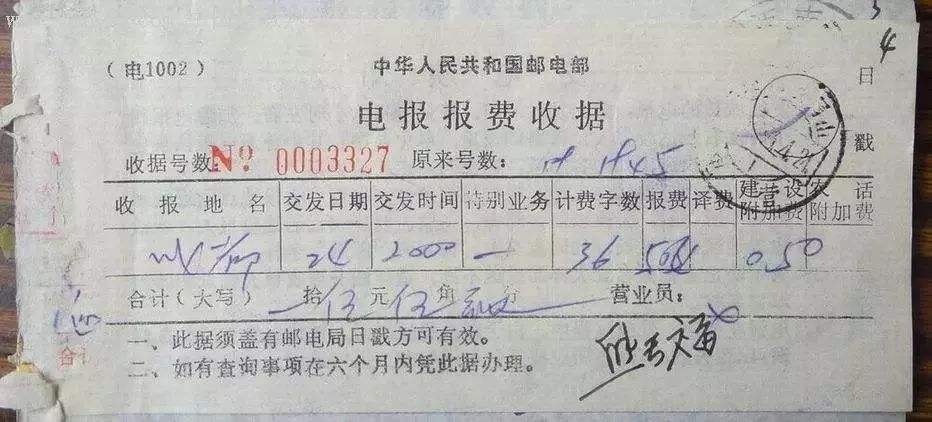 4
(电1002) 中华人民共和国邮电部 日
电报报费收据 戳
收据号数: No 0003327 原来号数: 1145
收报地名 交发日期 交发时间 特别业务 计费字数 报费 译费 建设附加费 农话附加费
成都 24 2000 一 36 504 0.50
合计(大写) 拾伍元伍角 分 营业员:
一、此据须盖有邮电局日戳方可有效。
二、如有查询事项在六个月内凭此据办理。
合